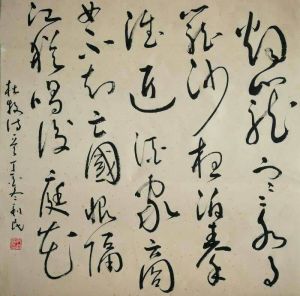 烟籠寒水月
籠沙夜泊秦
淮近酒家商
女不知亡國恨隔
江猶唱後庭花
杜牧詩 利民